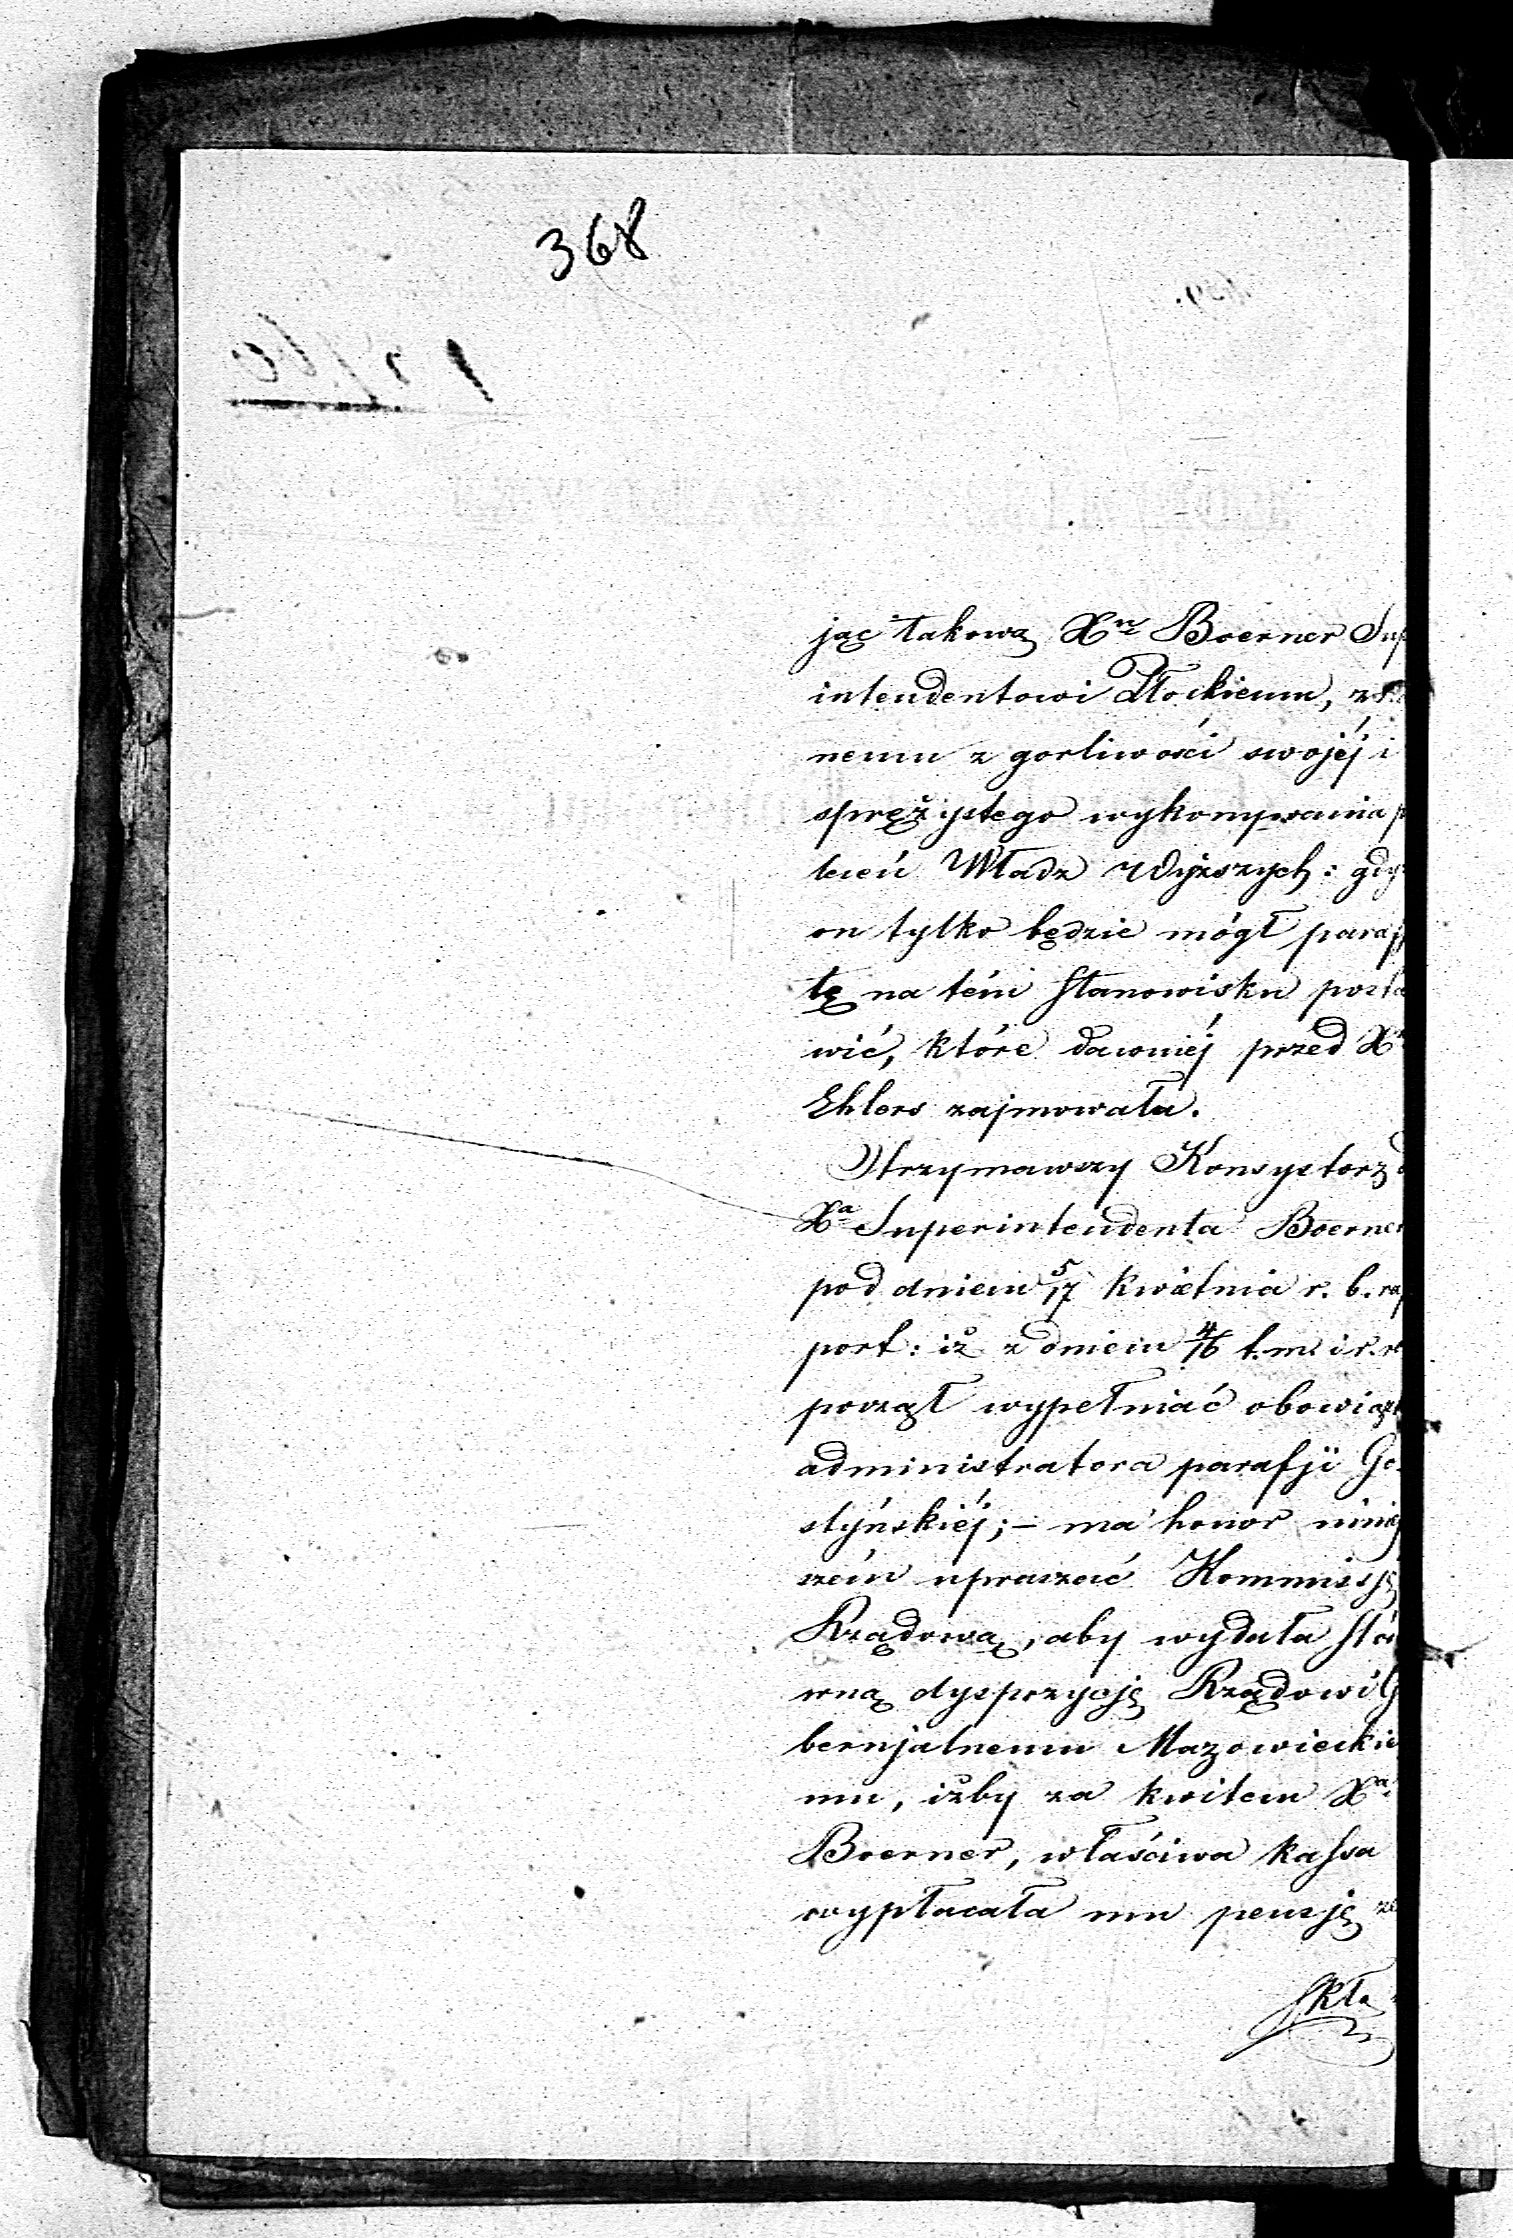 368
jąc takową Xu Boerner Sup
intendentowi Płockiemu, zna
nemu z gorliwości swojéj i
sprężystego wykonywania p
leceń Władz Wyższych: gdyż
on tylko będzie mógł paraf
tę na tém stanowisku posta
wić, które dawniéj przed X
Ehlers zajmowała.
Otrzymawszy Konsystorz o
Xa Superintendenta Boerner
pod dniem 5/17 kwietnia r. b. rap
port: iż z dniem 4/16 t. m. i r. r
począł wypełniać obowiązk
administratora parafji Go
styńskiéj; – ma honor niniej
szém upraszać Kommissję
Rządową, aby wydała sto
wną dyspozycję Rządowi G
bernjalnemu Mazowieckie
mu, iżby za kwitem Xa
Boerner, właściwa kassa
wypłacała mu pensję ze
Skła